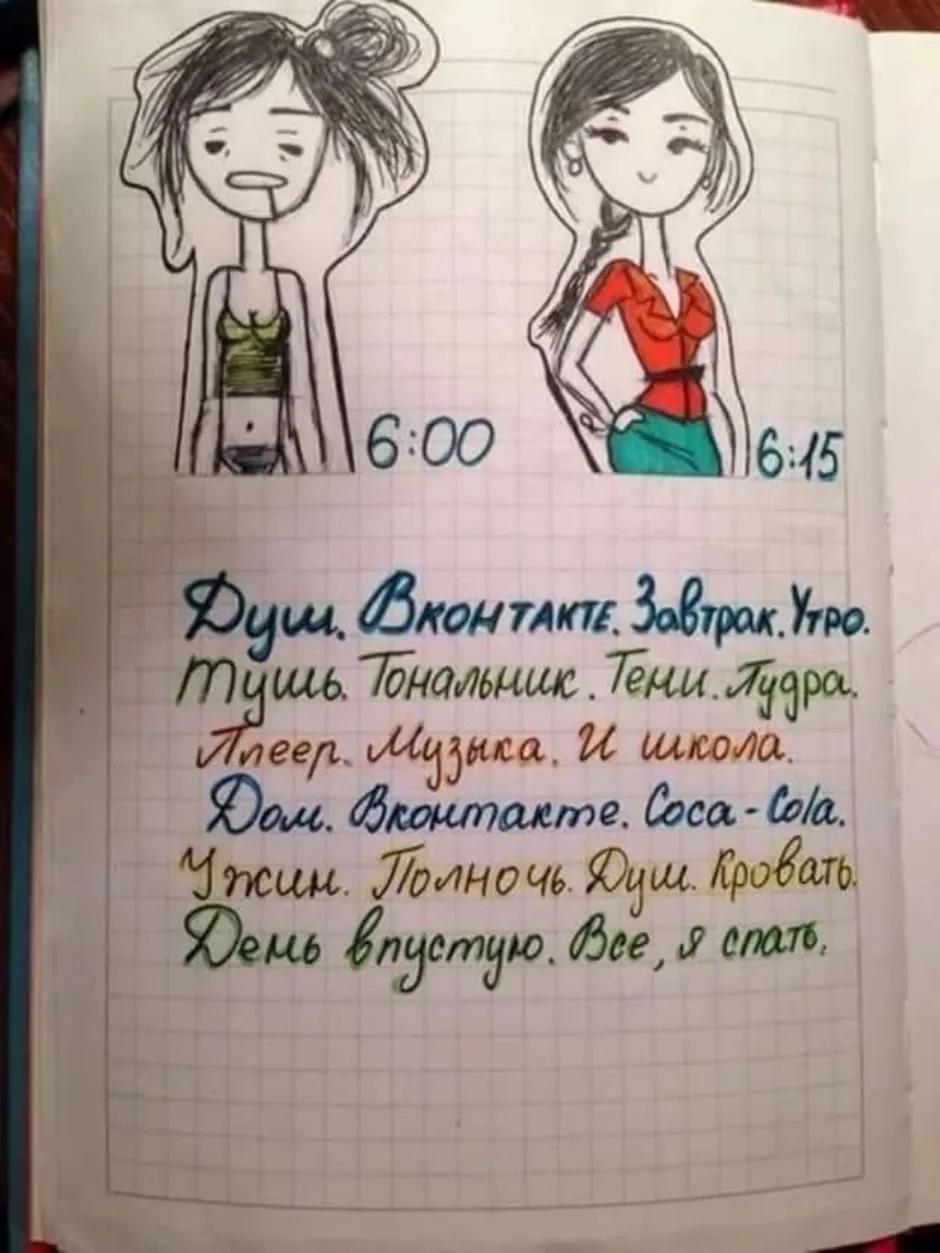 6:00
6:15
Душ. Вконтакте. Завтрак. Утро.
Тушь. Тональник. Тени. Пудра.
Плеер. Музыка. И школа.
Дом. Вконтакте. Coca-Cola.
Ужин. Полночь. Душ. Кровать.
День впустую. Все, я спать.